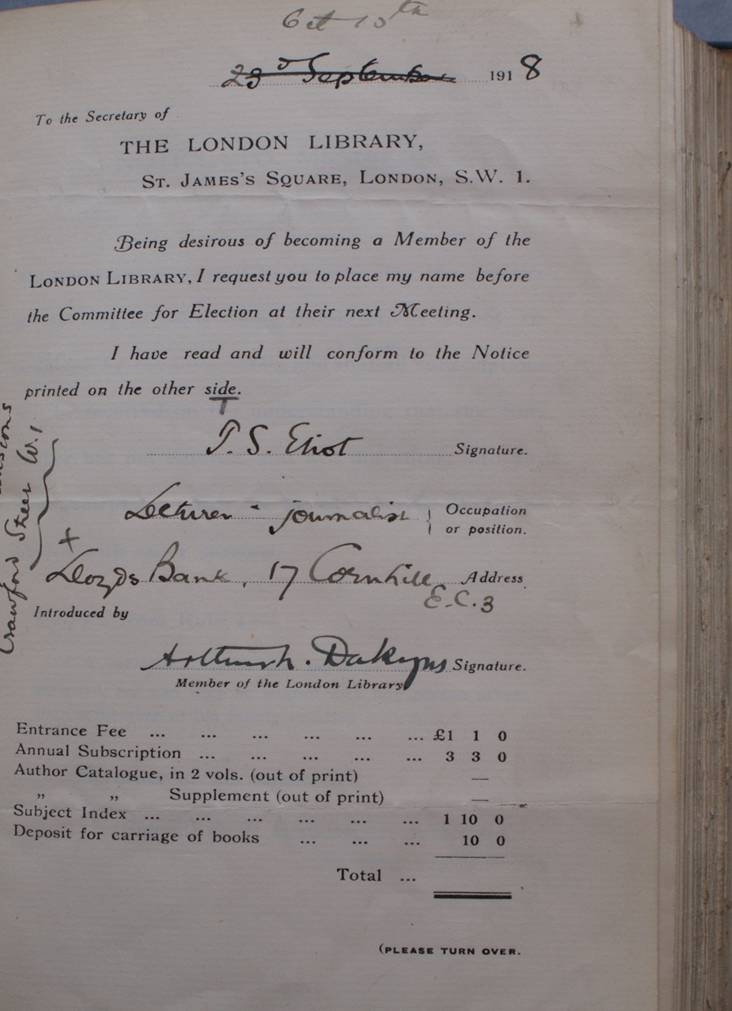 Oct 10th
23d September 1918
To the Secretary of
THE LONDON LIBRARY,
ST. JAMES'S SQUARE, LONDON, S.W. 1.
Being desirous of becoming a Member of the
LONDON LIBRARY, I request you to place my name before
the Committee for Election at their next Meeting.
I have read and will conform to the Notice
printed on the other side.
T
T. S. Eliot Signature.
Lecturer - journalist } Occupation
or position.
+
Lloyds Bank, 17 Cornhill Address
E.C.3
Crawford Street W.1
Introduced by
Arthur h. Dakyns Signature.
Member of the London Library
Entrance Fee ... ... ... ... ... ... £1 1 0
Annual Subscription ... ... ... ... ... 3 3 0
Author Catalogue, in 2 vols. (out of print) —
„ „ Supplement (out of print) —
Subject Index ... ... ... ... ... ... 1 10 0
Deposit for carriage of books ... ... ... 10 0
Total ...
(PLEASE TURN OVER.